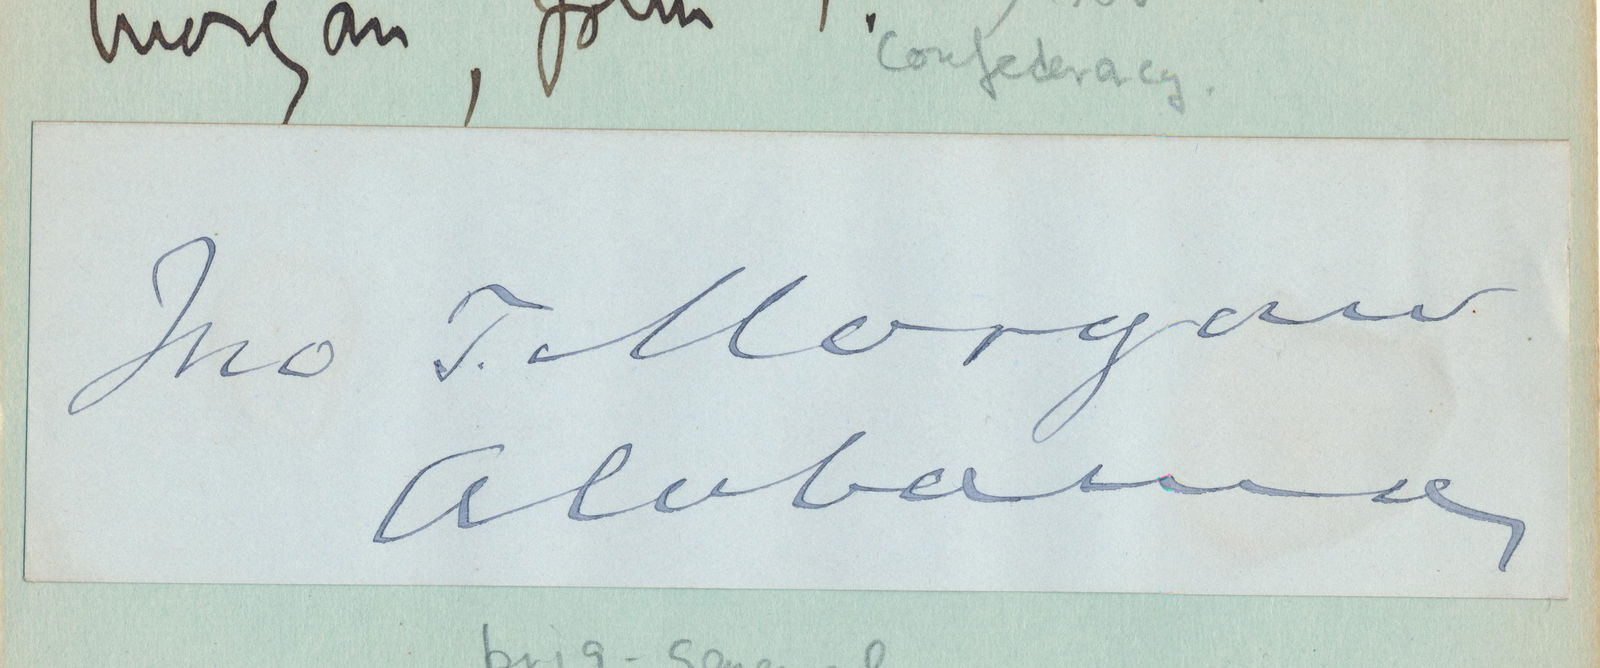 Morgan, John T.
Confederacy.
Jno T. Morgan
Alabama
brig-General